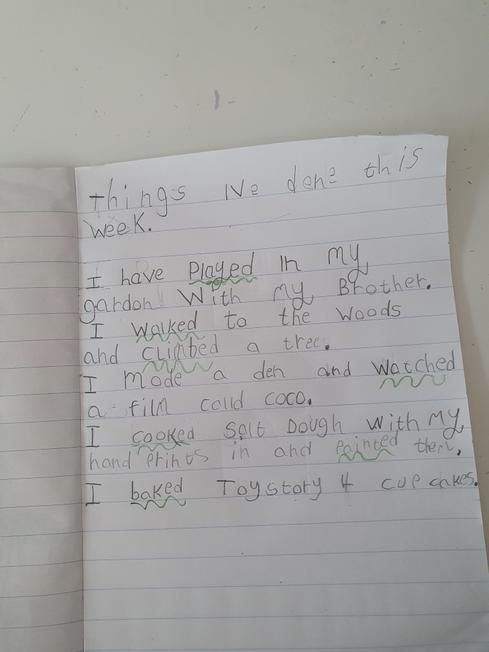 things Ive done this
week.
I have Played In my
gardon With my Brother.
I walked to the woods
and climbed a tree.
I made a den and watched
a film calld coco.
I cooked Salt Dough with my
hand Prints in and Painted them.
I baked Toystory 4 cupcakes.